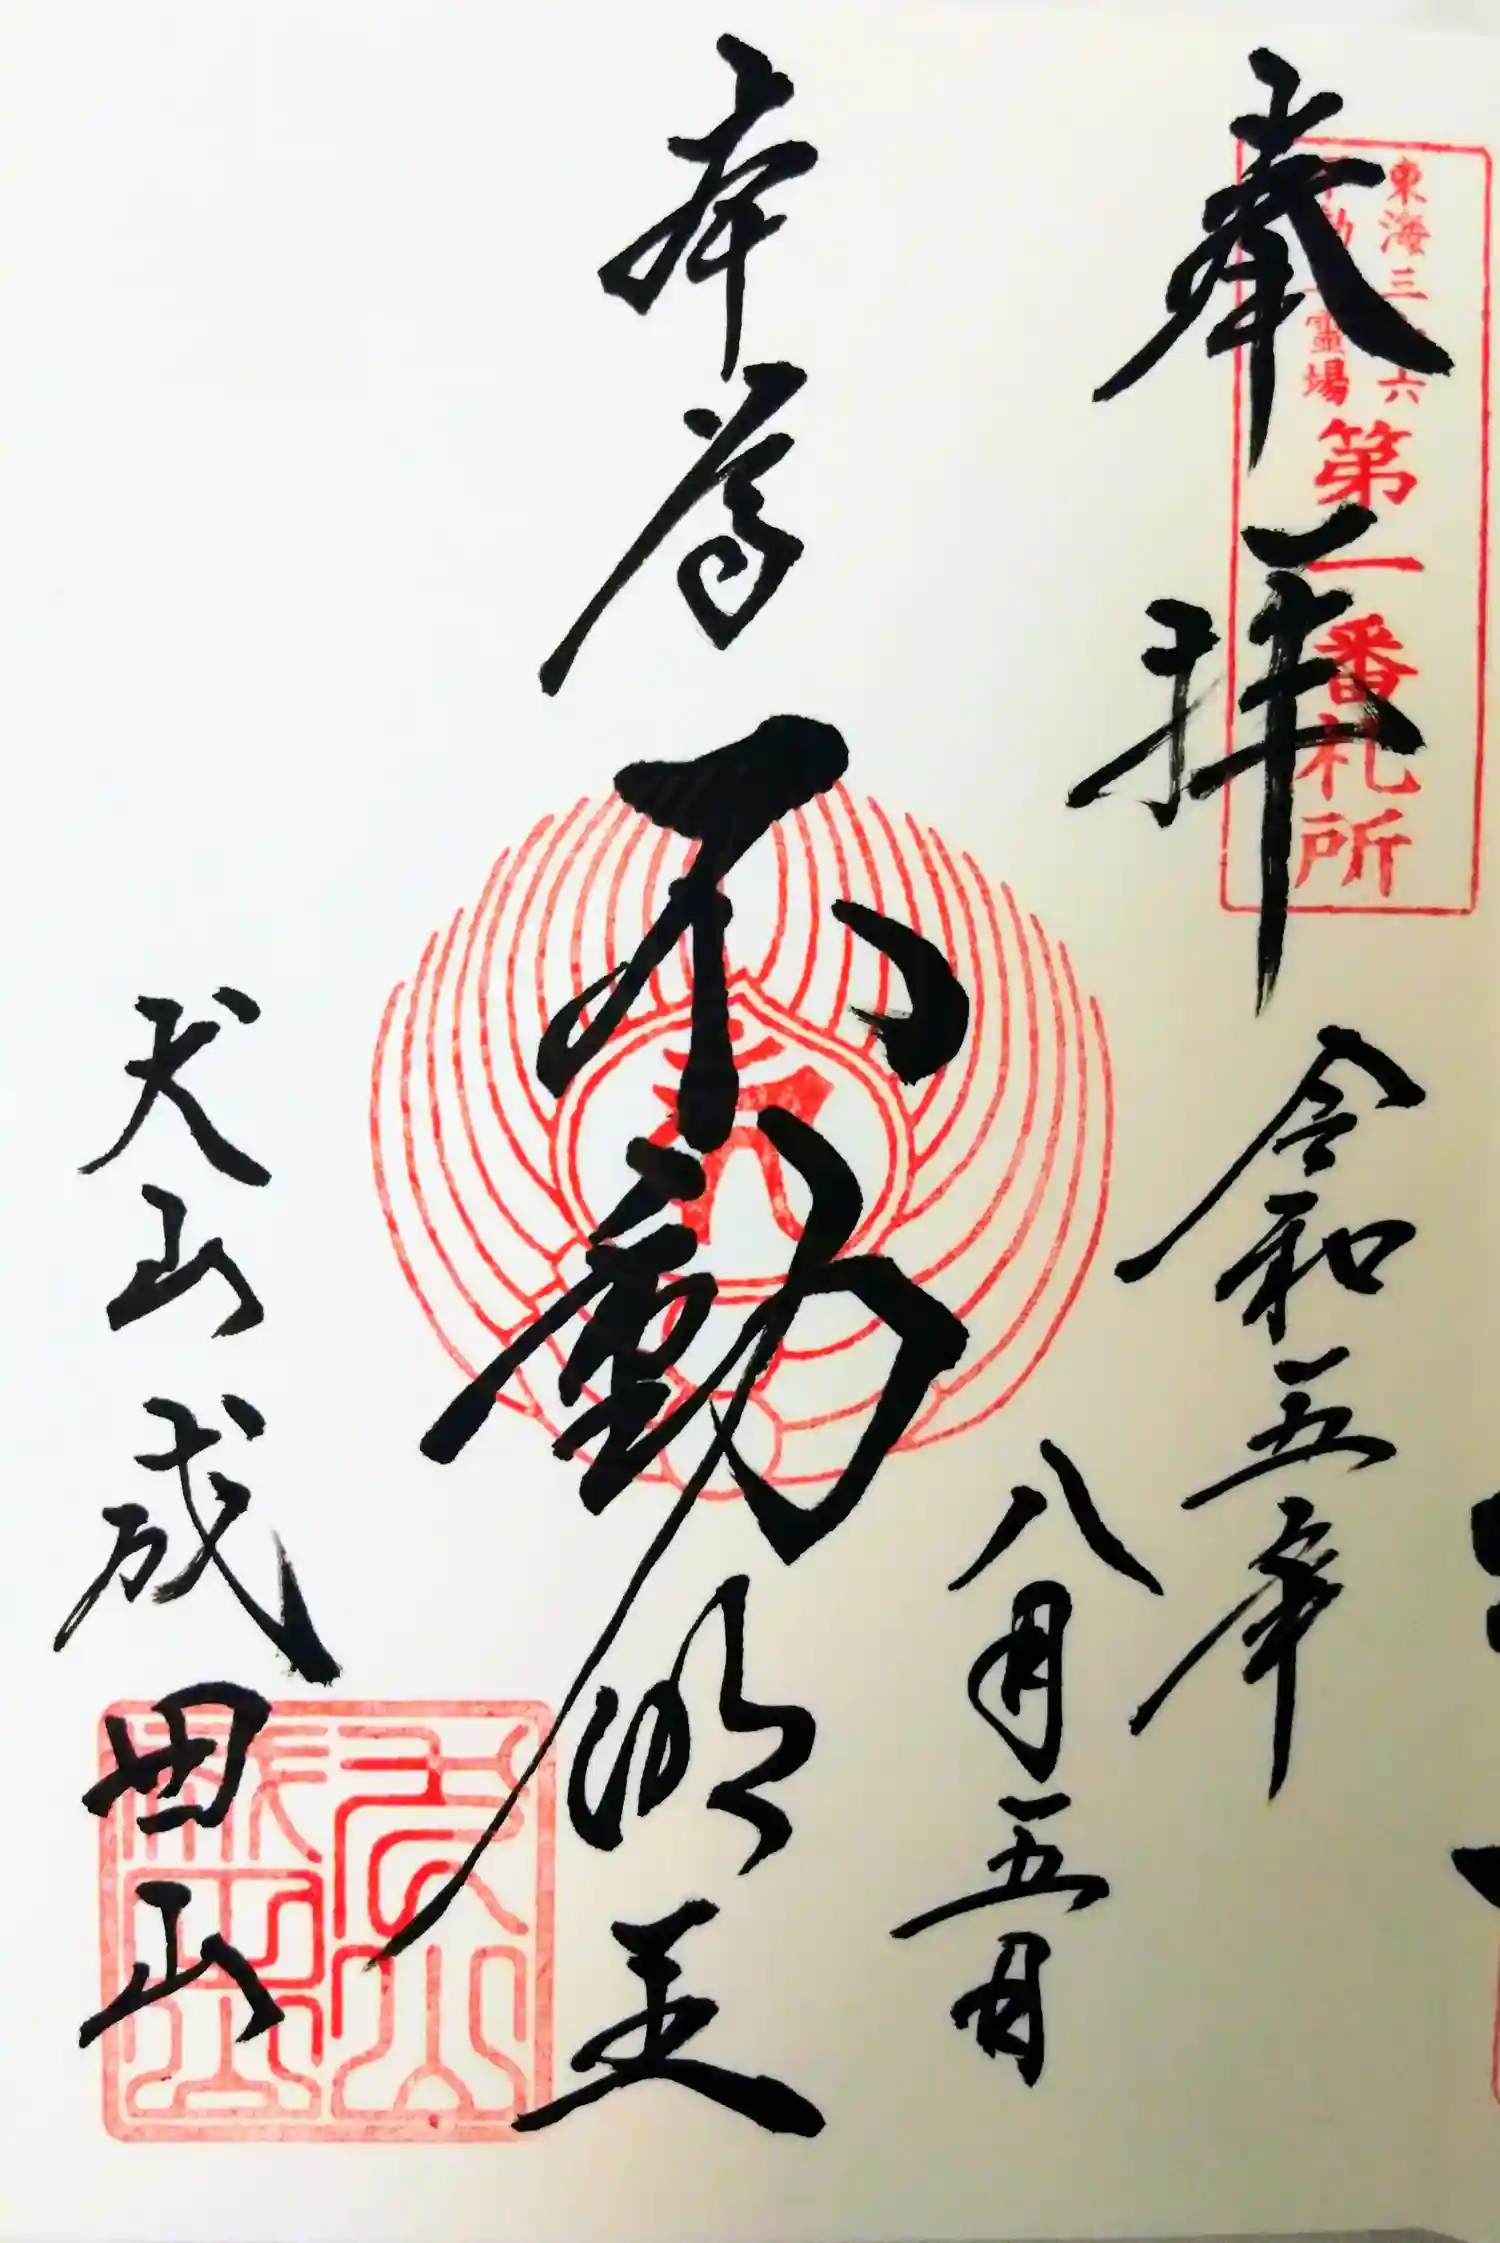 奉拝
東海三十六
不動尊霊場
第一番札所
令和五年
八月五日
本尊
不動明王
犬山成田山